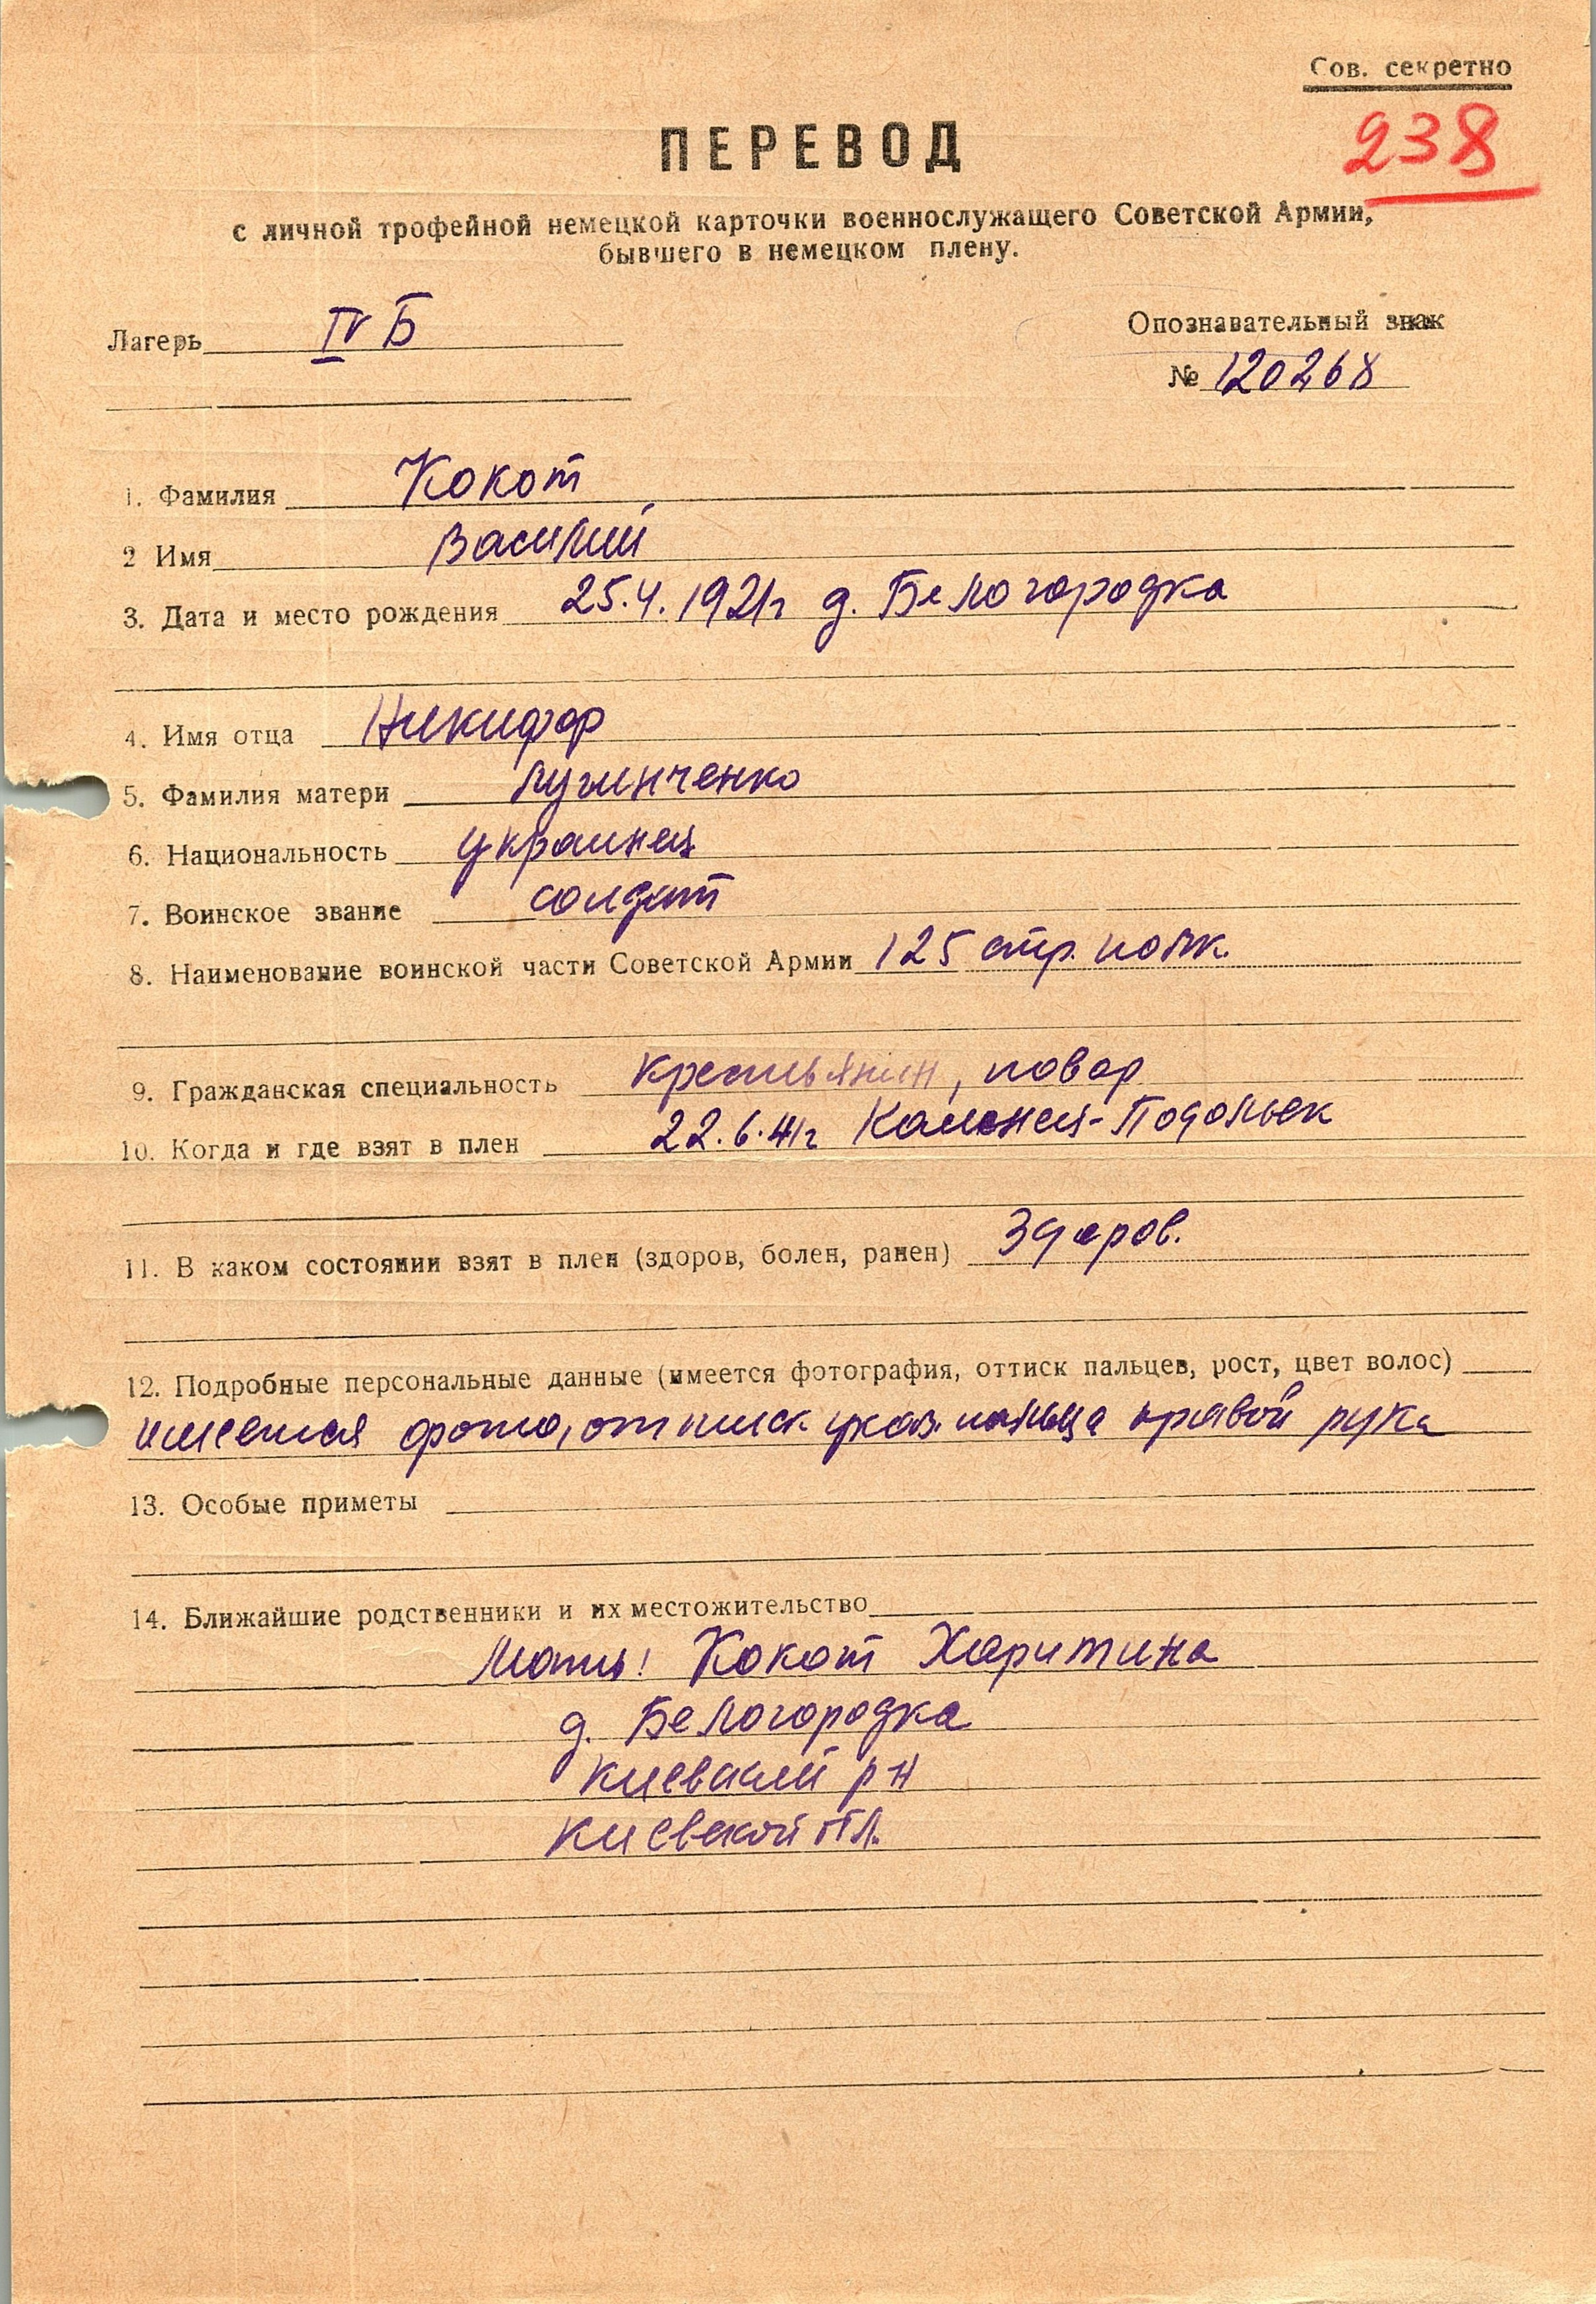 Сов. секретно
238
ПЕРЕВОД
с личной трофейной немецкой карточки военнослужащего Советской Армии,
бывшего в немецком плену.
Лагерь IV Б
Опознавательный знак
№ 120268
1. Фамилия Кокот
2 Имя Василий
3. Дата и место рождения 25.4.1921г д. Белогородка
4. Имя отца Никифор
5. Фамилия матери
6. Национальность украинец
7. Воинское звание солдат
8. Наименование воинской части Советской Армии 125 стр. полк.
9. Гражданская специальность крестьянин, повар
10. Когда и где взят в плен 22.6.41г Каменец-Подольск
11. В каком состоянии взят в плен (здоров, болен, ранен) Здоров.
12. Подробные персональные данные (имеется фотография, оттиск пальцев, рост, цвет волос)
имеется фото, оттиск указ. пальца правой руки
13. Особые приметы
14. Ближайшие родственники и их местожительство
Мать: Кокот Харитина
д. Белогородка
Киевский р-н
Киевской